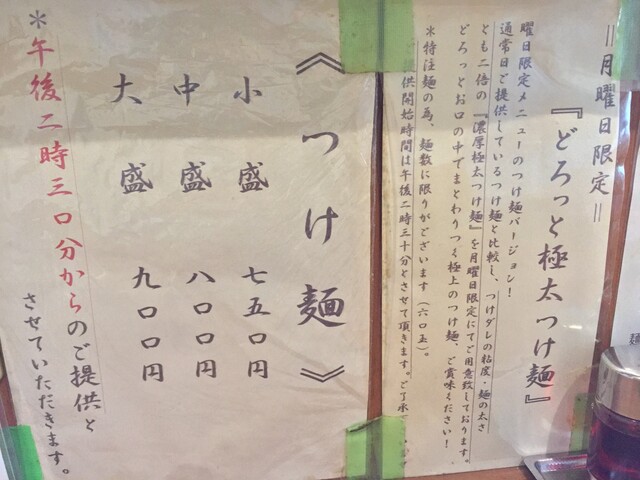 ＝月曜日限定＝
『どろっと極太つけ麺』
曜日限定メニューのつけ麺バージョン！
通常日ご提供しているつけ麺と比較し、つけダレの粘度・麺の太さ
とも二倍の『濃厚極太つけ麺』を月曜日限定にてご用意致しております。
どろっとお口の中でまとわりつく極上のつけ麺、ご賞味ください！
＊特注麺の為、麺数に限りがございます（六〇玉）。
ご提供開始時間は午後二時三十分とさせて頂きます。ご了承
《つけ麺》
小盛 七五〇円
中盛 八〇〇円
大盛 九〇〇円
＊午後二時三〇分からのご提供と
させていただきます。